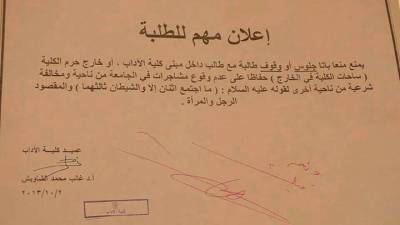 إعلان مهم للطلبة
يمنع منعا باتا جلوس أو وقوف طالبة مع طالب داخل مبنى كلية الآداب، أو خارج حرم الكلية
( ساحات الكلية في الخارج ) حفاظا على عدم وقوع مشاجرات في الجامعة من ناحية ومخالفة
شرعية من ناحية أخرى لقوله عليه السلام : ( ما اجتمع اثنان إلا والشيطان ثالثهما ) والمقصود
الرجل والمرأة .
عميد كلية الآداب
أ.د. غالب محمد الشاويش
٢٠١٣/١٠/٢